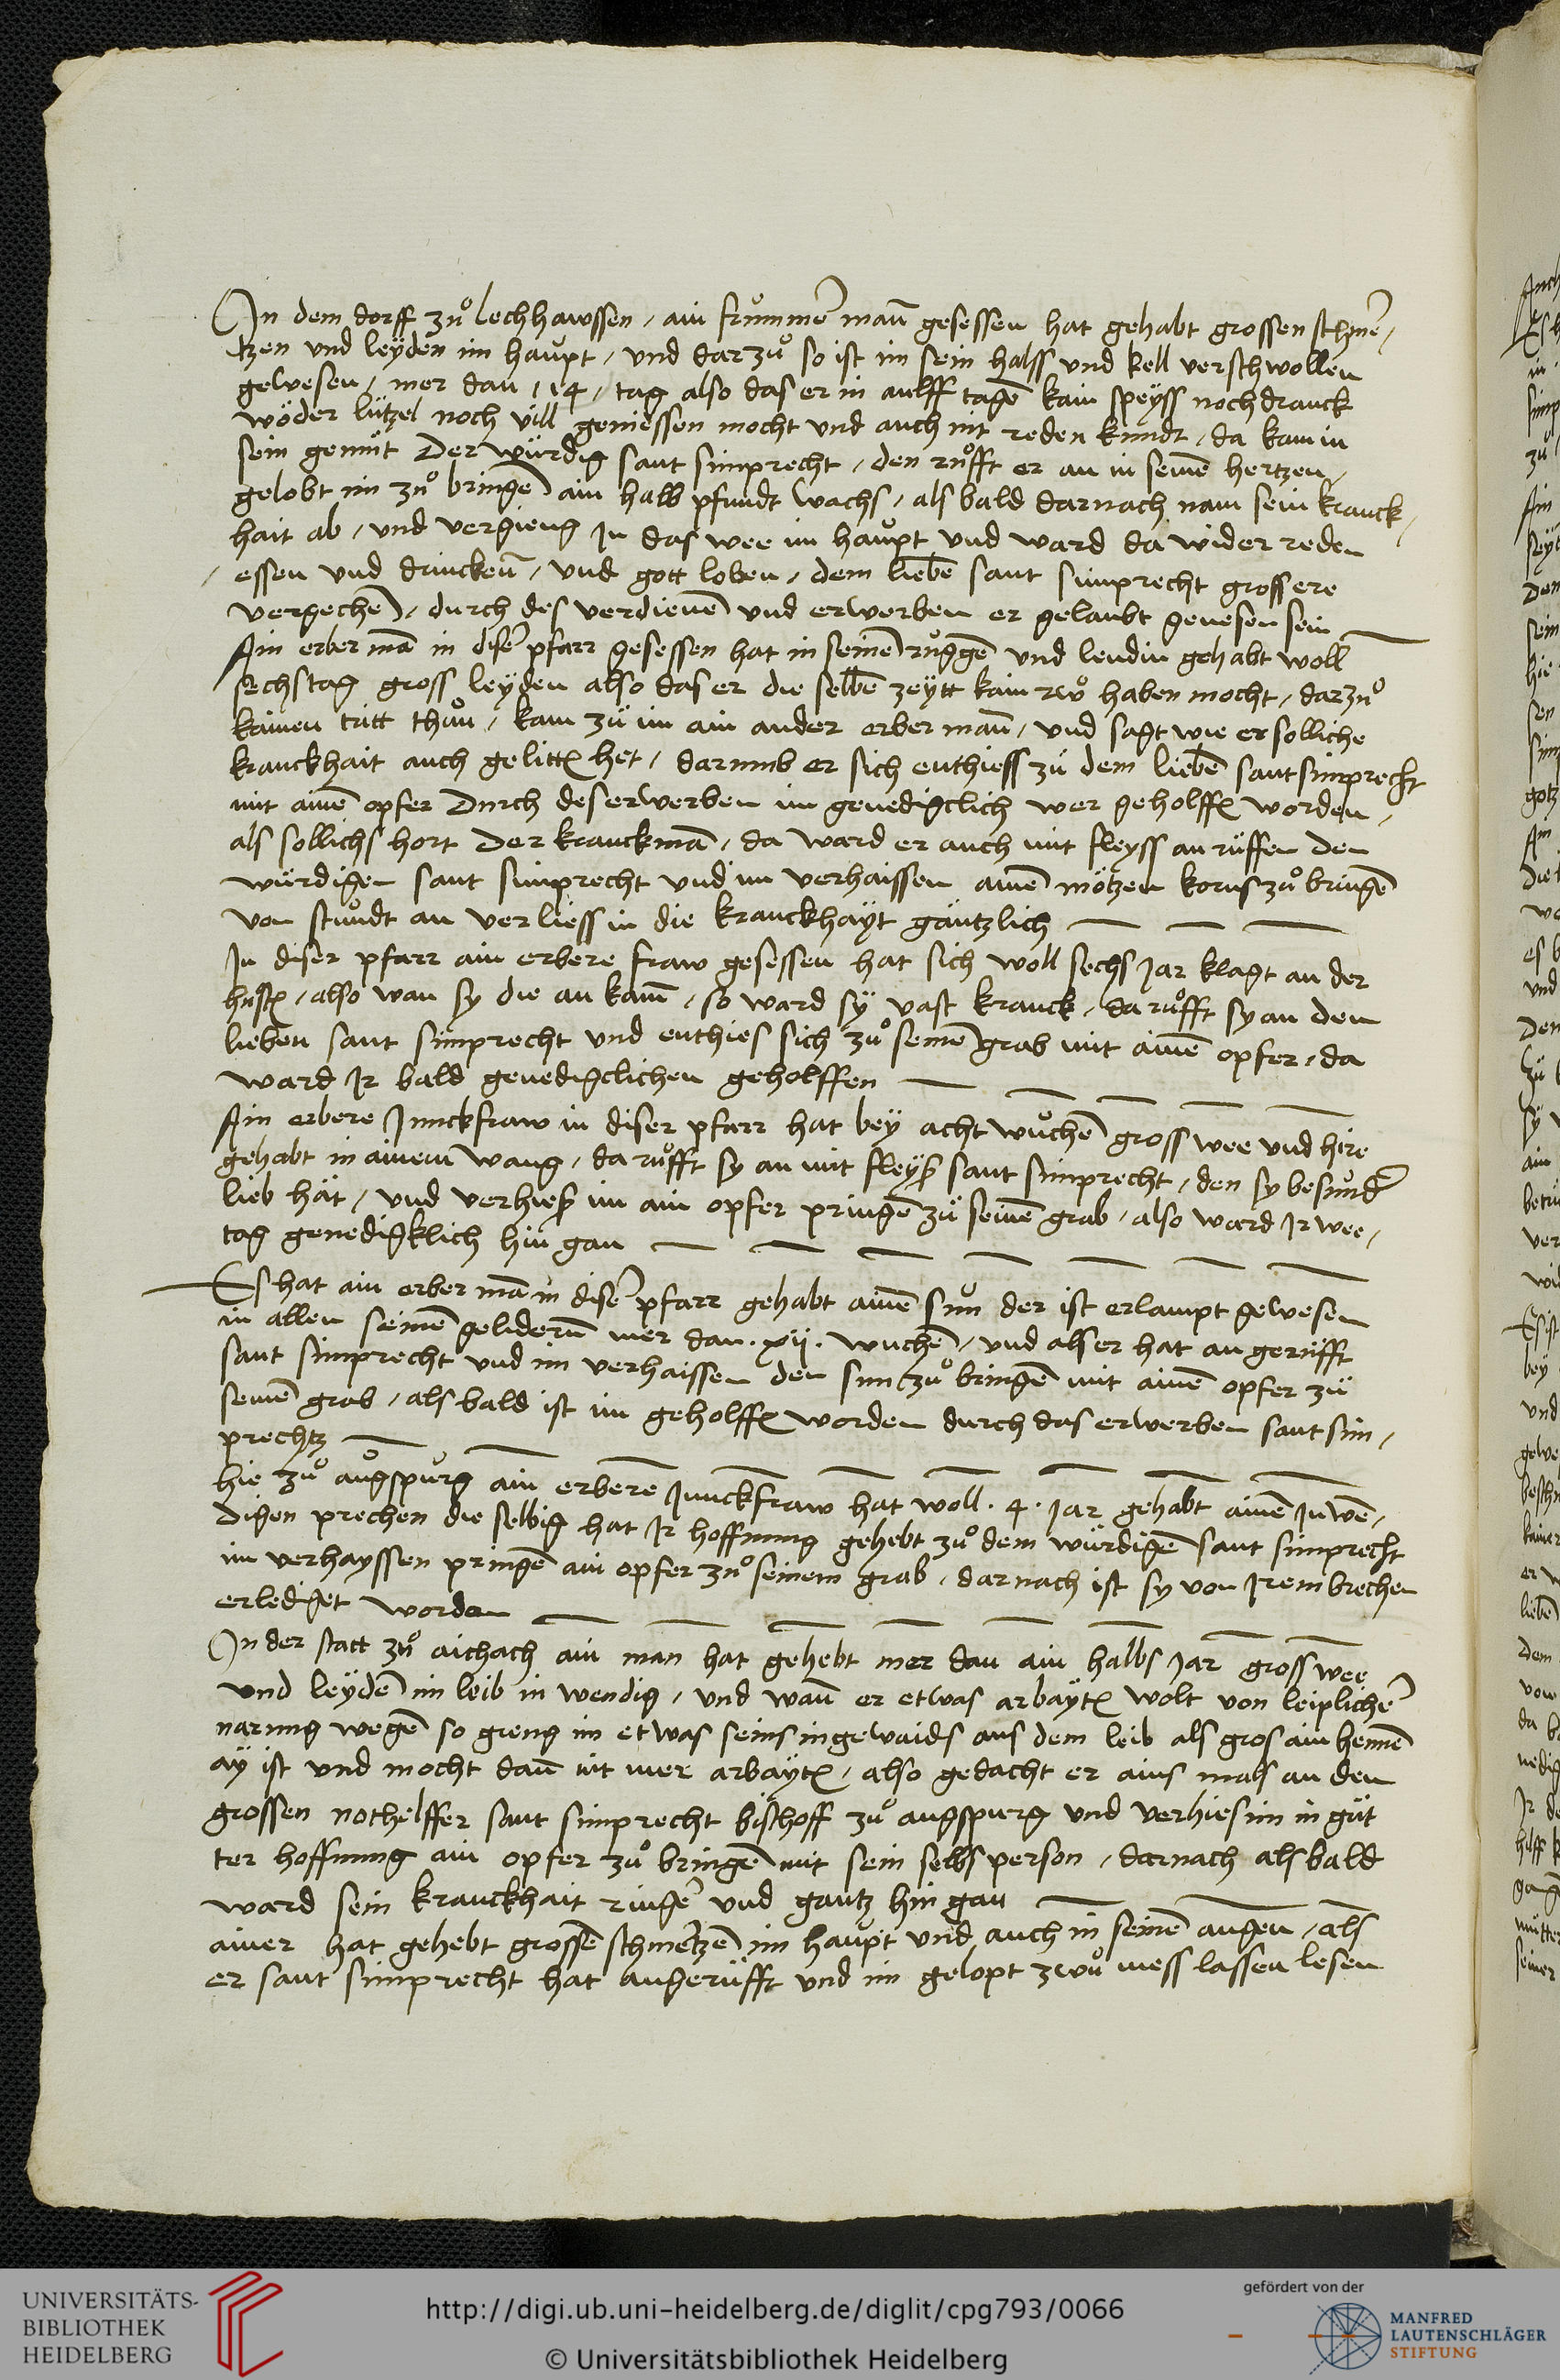 In dem dorff zuͦ lechhawssen / ain frummer̄ man̄ gesessen hat gehabt grossen schmer̄ /
tzen vnd leÿden im haupt / vnd darzuͦ so ist im sein halss vnd kell verschwollen
gewesen / mer dan / 14 / tag also das er in aulff tagē kain speÿss noch dranck
wöder lützel noch vill geniessen mocht vnd auch nit reden kundt / da kam in
sein gemüt Der würdig sant simprecht / den ruͦfft er an in seinē hertzen /
gelobt im zuͦ bringē ain halb pfundt wachs / als bald darnach nam sein kranck /
hait ab / vnd vergieng In das wee im haupt vnd ward da wider reden
/ essen vnd drincken̄ / vnd gott loben / dem liebē sant simprecht gross ere
vergechē / durch des verdienē vnd erwerben er gelaubt genesen sein
Ain erber mā in diser̄ pfarr gesessen hat in seinē ruggē vnd lendin gehabt woll
sechs tag gross leÿden also das er die selbē zeÿtt kain rwͦ haben mocht / darzuͦ
kainen tritt thuͦn / kam zü im ain ander erber man̄ / vnd sagt wie er solliche
kranckhait auch gelittē het / darumb er sich enthiess zü dem liebē sant simprecht
mit ainē opfer Durch des erwerben im genedigclich wer geholffē worden /
als sollichs hort Der kranck mā / da ward er auch mit fleyss an rüffen den
würdigen sant simprecht vnd im verhaissen ainē mötzen korns zuͦ bringē
von stundt an verliess in die kranckhaÿt gäntzlich
In diser pfarr ain erbere fraw gesessen hat sich woll sechs Jar klagt an der
huͦstē / also wan sy die an kam̄ / so ward sÿ vast kranck / da ruͦfft sy an den
lieben sant simprecht vnd enthies sich zuͦ seinē grab mit ainē opfer / da
ward Ir bald genedigclichen geholffen
Ain erbere Junckfraw in diser pfarr hat beÿ acht wuchē gross wee vnd hire
gehabt in ainem wang / da ruͦfft sy an mit fleÿs sant simprecht / den sy besunder̄
lieb hät / vnd verhies im ain opfer pringē zü seinē grab / also ward Ir wee /
tag genedigklich hin gan
Es hat ain erber mā in diser̄ pfarr gehabt ainē sun der ist erlampt gewesen
in allen seinē gelidern̄ mer dan . xii . wuchē / vnd als er hat an gerüfft
sant simprecht vnd im verhaissen den sun zuͦ bringē mit ainē opfer zü
seinē grab / als bald ist im geholffē worden durch das erwerben sant sim /
prechtz
hie zuͦ augspurg ain erbere Junckfraw hat woll . 4 . Jar gehabt ainē Inwē /
digen prechen die selbig hat Ir hoffnung gehebt zuͦ dem würdigē sant simprecht
im verhayssen pringē ain opfer zuͦ seinem grab / darnach ist sy von Irem brechen
erlediget worden
In der statt zuͦ aichach ain man hat gehebt mer dan ain halbs Jar gross wee
vnd leÿdē im leib in wendig / vnd wan̄ er etwas arbaÿtē wolt von leiplicher̄
narung wegē so gieng im etwas seins ingewaids aus dem leib als gros ain hennē
aÿ ist vnd mocht dan̄ nit mer arbaÿtē / also gedacht er ains mals an den
grossen nothelffer sant simprecht bischoff zuͦ augspurg vnd verhies im in güt
ter hoffnung ain opfer zuͦ bringē mit sein selbs person / darnach als bald
ward sein kranckhait ringer̄ vnd gantz hin gan
ainer hat gehebt grossē schmertzē im haupt vnd auch in seinē augen / als
er sant simprecht hat angerüfft vnd im gelopt zwuͦ mess lassen lesen
UNIVERSITÄTS-
BIBLIOTHEK
HEIDELBERG
http://digi.ub.uni-heidelberg.de/diglit/cpg793/0066
© Universitätsbibliothek Heidelberg
gefördert von der
MANFRED
LAUTENSCHLÄGER
STIFTUNG